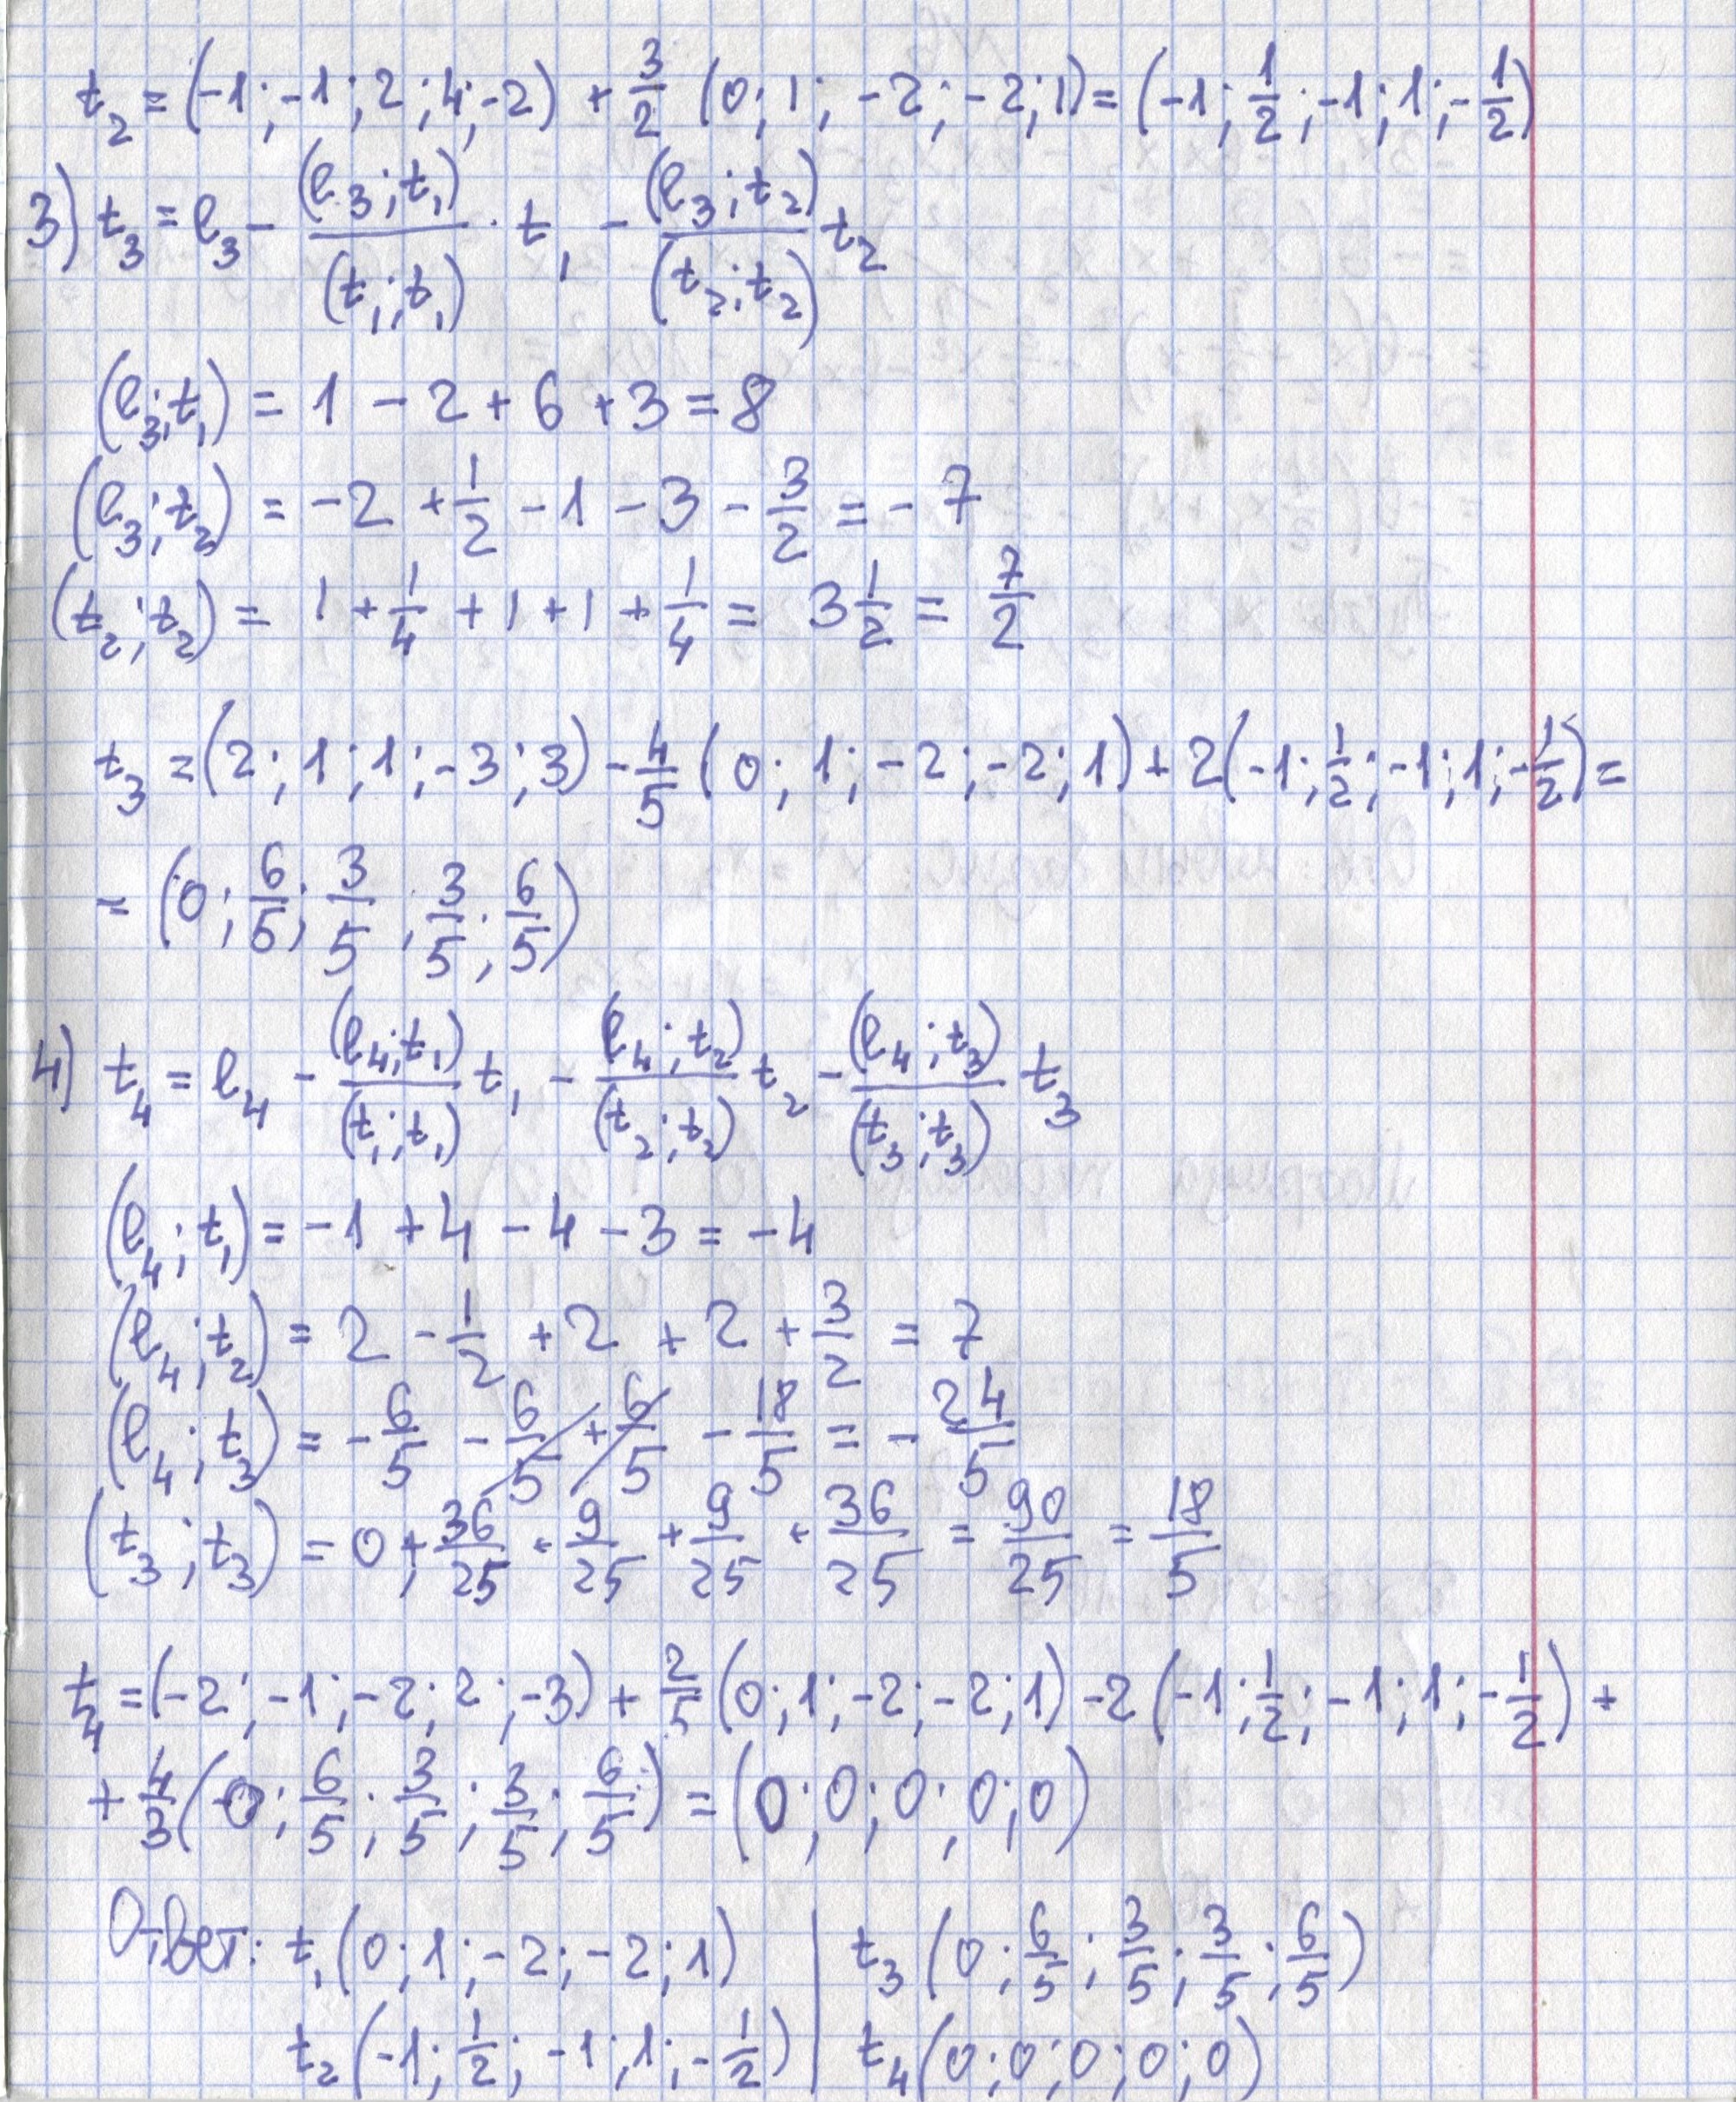 t₂ = (-1; -1; 2; 4; -2) + 3/2 (0; 1; -2; -2; 1) = (-1; 1/2; -1; 1; -1/2)
3) t₃ = e₃ - (e₃; t₁)/(t₁; t₁) · t₁ - (e₃; t₂)/(t₂; t₂) t₂
(e₃; t₁) = 1 - 2 + 6 + 3 = 8
(e₃; t₂) = -2 + 1/2 - 1 - 3 - 3/2 = -7
(t₂; t₂) = 1 + 1/4 + 1 + 1 + 1/4 = 3 1/2 = 7/2
t₃ = (2; 1; 1; -3; 3) - 4/5 (0; 1; -2; -2; 1) + 2(-1; 1/2; -1; 1; -1/2) =
= (0; 6/5; 3/5; 3/5; 6/5)
4) t₄ = e₄ - (e₄; t₁)/(t₁; t₁) t₁ - (e₄; t₂)/(t₂; t₂) t₂ - (e₄; t₃)/(t₃; t₃) t₃
(e₄; t₁) = -1 + 4 - 4 - 3 = -4
(e₄; t₂) = 2 - 1/2 + 2 + 2 + 3/2 = 7
(e₄; t₃) = -6/5 - 6/5 + 6/5 - 18/5 = -24/5
(t₃; t₃) = 0 + 36/25 + 9/25 + 9/25 + 36/25 = 90/25 = 18/5
t₄ = (-2; -1; -2; 2; -3) + 2/5 (0; 1; -2; -2; 1) - 2 (-1; 1/2; -1; 1; -1/2) +
+ 4/3 (0; 6/5; 3/5; 3/5; 6/5) = (0; 0; 0; 0; 0)
Ответ: t₁ (0; 1; -2; -2; 1) | t₃ (0; 6/5; 3/5; 3/5; 6/5)
t₂ (-1; 1/2; -1; 1; -1/2) | t₄ (0; 0; 0; 0; 0)